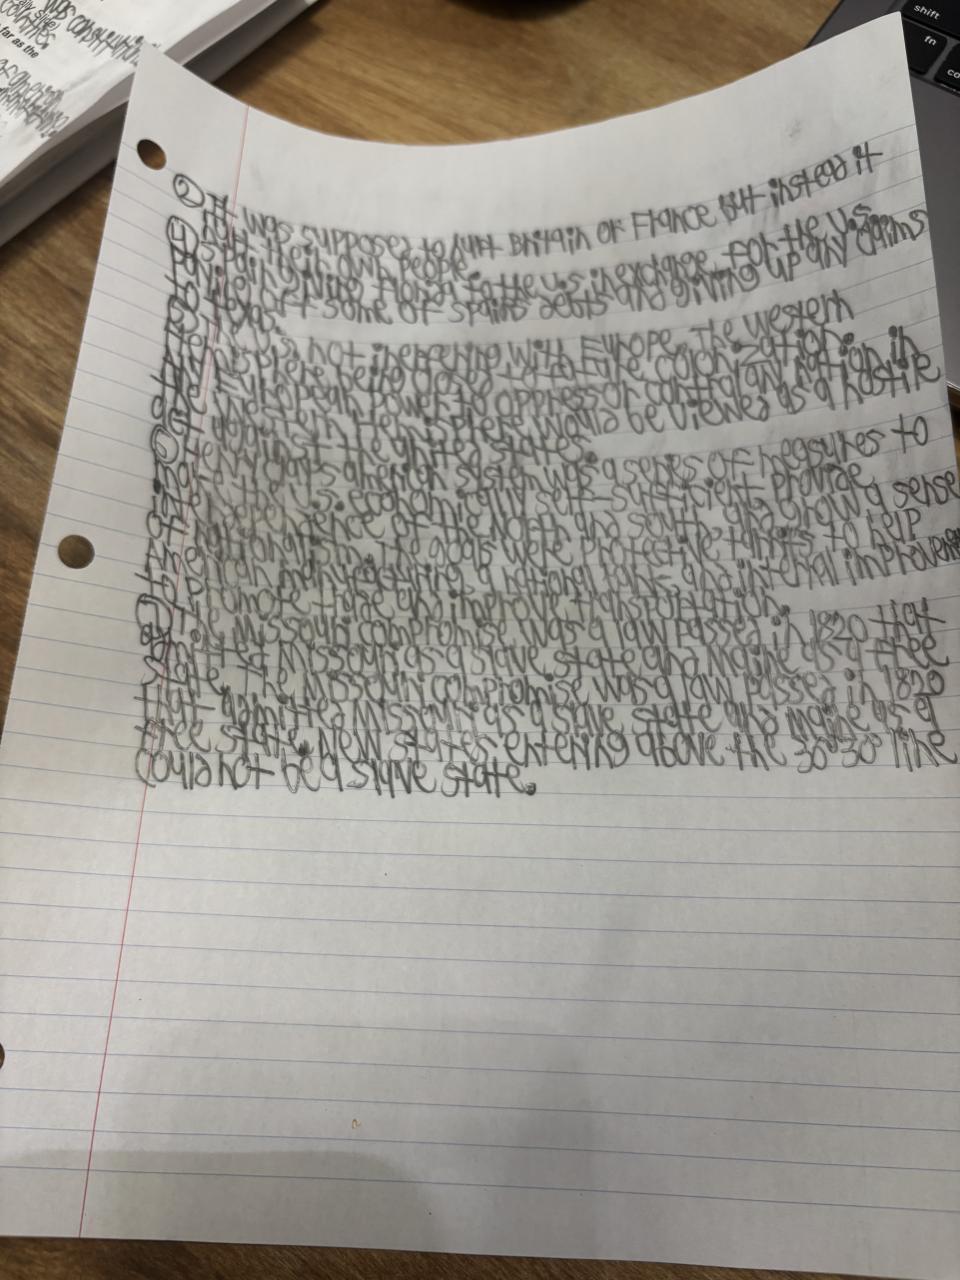 was constituting
counties
far as the
shift
fn
② It was supposes to hurt Britain or France but instead it
hurt their own people.
④ Spain giving Florida to the u.s. in exchange for the u.s.
paying off some of spains debts and giving up any claims
to texas.
The U.S. not interfering with Europe. The western
hemisphere being closed to future colonization.
Any European power to oppress or control any nation in
the western hemisphere would be viewed as a hostile
act against the united states.
Henry Clay's american system was a series of measures to
make the U.S. economically self-sufficient provide
independence of the North and south and grow a sense
of nationalism. The goals were protective tariffs to help
american manufacturing, a national bank and internal improvements
to promote trade and improve transportation.
The Missouri compromise was a law passed in 1820 that
admitted Missouri as a slave state and Maine as a free
state. The Missouri compromise was a law passed in 1820
that admitted Missouri as a slave state and Maine as a
free state. New states entering above the 30°30° line
could not be a slave state.